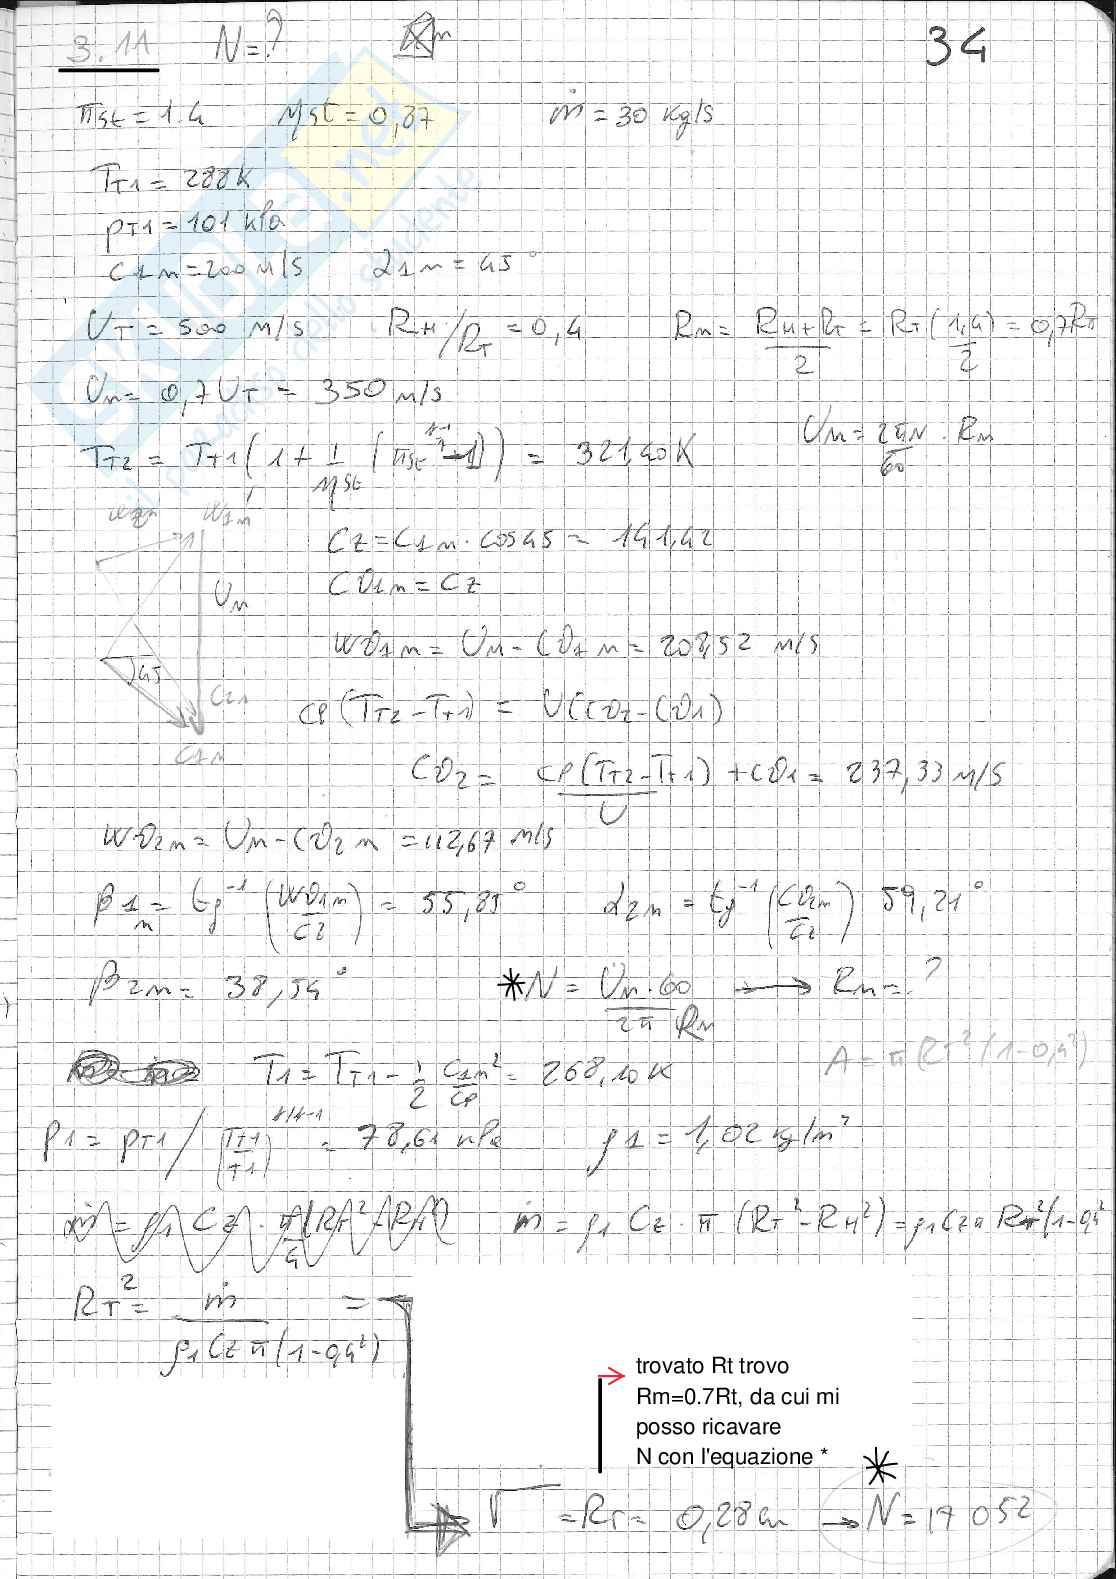 3.11 N=? 34
πst = 1.4 ηst = 0,87 ṁ = 30 kg/s
TT1 = 288K
pT1 = 101 kPa
C1m = 200 m/s α1m = 45°
UT = 500 m/s RH/RT = 0,4 Rm = (RH+RT)/2 = RT(1,4)/2 = 0,7RT
Um = 0,7UT = 350 m/s
Um = 2πN/60 · Rm
TT2 = TT1(1 + 1/ηst (πst^(γ-1/γ) -1)) = 321,40K
W2m W1m
Um
45
Cz1
C1m
Cz = C1m · cos45 = 141,42
Cϑ1m = Cz
Wϑ1m = Um - Cϑ1m = 208,52 m/s
cp(TT2 - TT1) = U(Cϑ2 - Cϑ1)
Cϑ2 = cp(TT2-TT1)/U + Cϑ1 = 237,33 m/s
Wϑ2m = Um - Cϑ2m = 112,67 m/s
β1m = tg^-1 (Wϑ1m/Cz) = 55,85° α2m = tg^-1 (Cϑ2m/Cz) 59,21°
β2m = 38,54° *N = Um·60/2π Rm → Rm = ?
T1 = TT1 - 1/2 C1m²/cp = 268,10K A = π(RT²(1-0,4²)
p1 = pT1 / (TT1/T1)^γ/γ-1 = 78,61 kPa ρ1 = 1,02 kg/m³
ṁ = ρ1 Cz · π/4 (RT² - RH²) ṁ = ρ1 Cz · π (RT² - RH²) = ρ1 Cz π RT²(1-0,4²
RT² = ṁ / ρ1 Cz π (1-0,4²) =
trovato Rt trovo
Rm=0.7Rt, da cui mi
posso ricavare
N con l'equazione *
*
√ = RT = 0,28m → N = 17 052